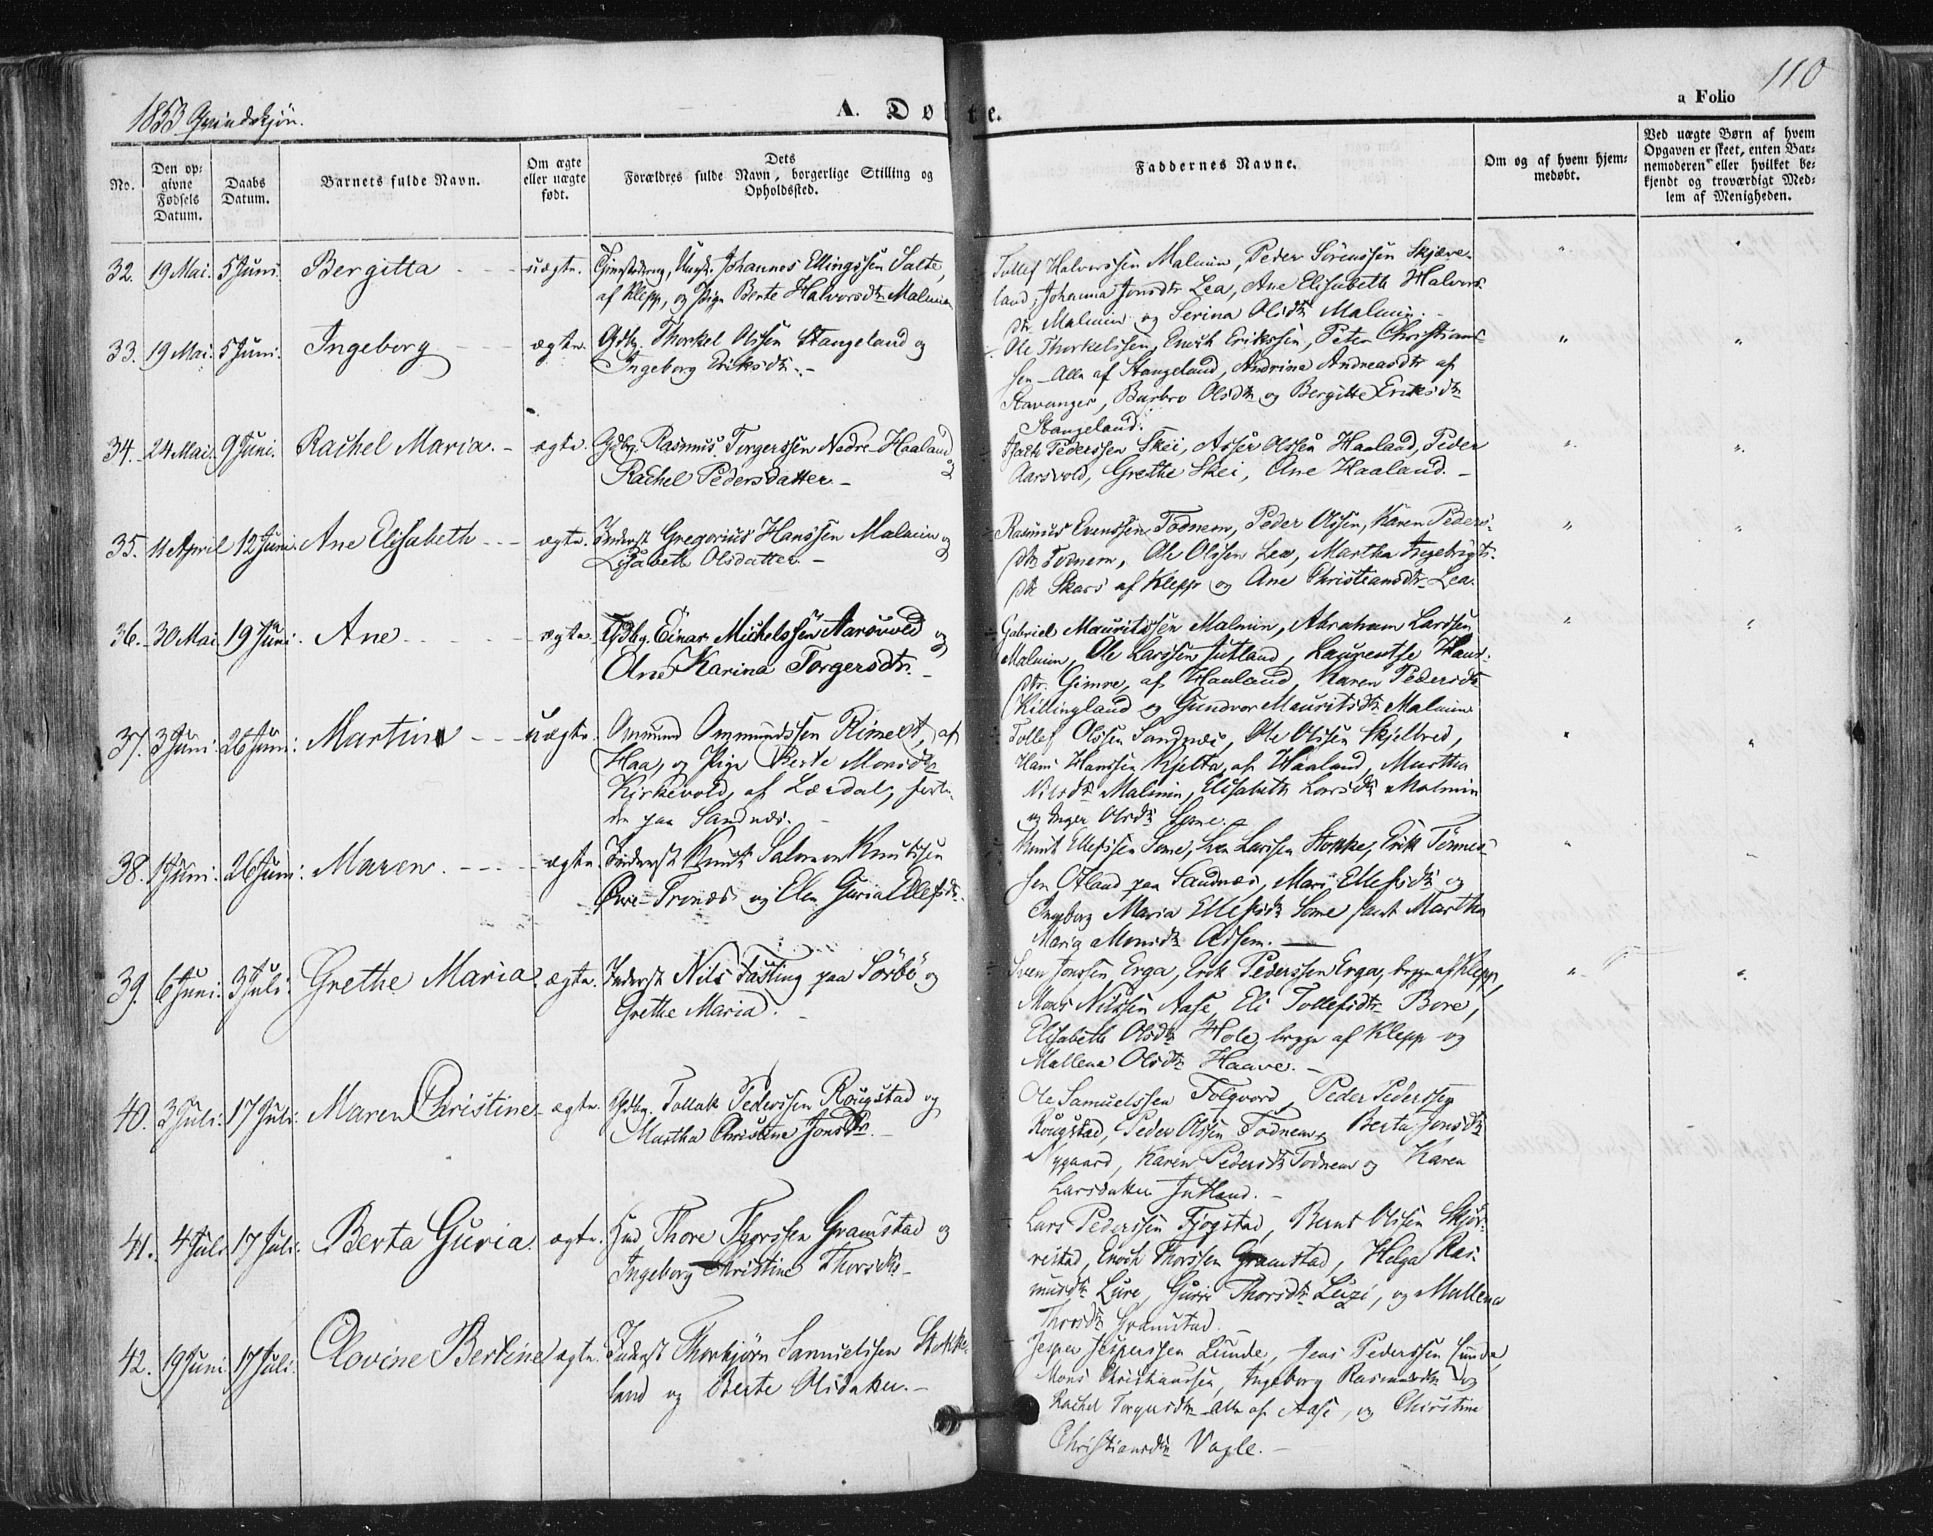 1853 Qvindekjøn.
A. Døbte.
a Folio 110
No.
Den opgivne Fødsels Datum.
Daabs Datum.
Barnets fulde Navn.
Om ægte eller uægte født.
Dets Forældres fulde Navn, borgerlige Stilling og Opholdssted.
Faddernes Navne.
Om og af hvem hjemmedøbt.
Ved uægte Børn af hvem
Opgaven er skeet, enten Bar-
nemoderen eller hvilket be-
kjendt og troværdigt Med-
lem af Menigheden.
32. 19 Mai. 5 Juni. Bergitta uægte. Ungk. Johannes Ellingssen Salte,
af Klepp, og Pige Berte Halvorsdtr Malmin
Tollef Halvorssen Malmin, Peder Sörenssen Skjæve-
land, Johanna Jonsdtr Lea, Ane Elisabeth Halvors-
dtr. Malmin og Serina Olsdtr Malmin.
33. 19 Mai. 5 Juni. Ingeborg ægte. Gdbr. Thorkel Olssen Stangeland og
Ingeborg Eriksdtr.
Ole Thorkelssen, Enoch Erikssen, Peter Christians-
sen Alle af Stangeland, Andrina Andreasdtr af
Stavanger, Barbro Olsdtr og Bergitte Eriksdtr
Stangeland.
34. 24 Mai. 9 Juni. Rachel Maria. ægte. Gdbr. Rasmus Torgerssen Nedre-Haaland
Rachel Pedersdatter.
Pederssen Skei, Asser Olssen Haaland, Peder
Aarsvold, Grethe Skei, Ane Haaland.
35. 11 April 12 Juni. Ane Elisabeth ægte. Inderst Gregorius Hanssen Malmin og
Lisabeth Olsdatter.
Rasmus Evenssen Todnem, Peder Olssen, Karen Peders-
dtr Todnem, Ole Olssen Lea, Martha Ingebrigts-
dtr Skars af Klepp og Ane Christiansdtr Lea.
36. 30 Mai. 19 Juni. Ane ægte. Gdbr. Einar Michelssen Aarsvold og
Ane Karina Torgersdtr.
Gabriel Mauritssen Malmin, Abraham Larssen
Malmin, Ole Larssen Jutland, Laurentse Hans-
dtr. Gimre, af Haaland, Karen Pedersdtr
Killingland og Gundvor Mauritsdtr Malmin
37. 3 Juni. 26 Juni. Martina uægte. Ommund Ommundssen Rimest, af
Haa, og Pige Berte Monsdtr
Kirkevold, af Læsdal,
paa Sandnes.
Tollef Olssen Sandnes, Ole Olssen Skjelbred,
Hans Hanssen Kjelta, af Haaland, Martha
Nilsdtr Malmin, Elisabeth Larsdtr Malmin
og Inger Olsdtr Some.
38. 1 Juni. 26 Juni. Maren. ægte. Inderst Knut Salmon Knutssen
Øvre-Trones og Elen Guria Ellefsdtr.
Knut Ellefssen Some, Sven Larssen Stokke, Erik Tönnes-
sen Ofland paa Sandnes, Mari Ellefsdtr og
Ingeborg Maria Ellefsdtr Some samt Martha
Maria Monsdtr Adsem.
39. 6 Juni. 3 Juli. Grethe Maria. ægte. Inderst Nils Fasting paa Sörbö og
Grethe Maria.
Sven Jonssen Erga, Erik Pederssen Erga, begge af Klepp,
Mons Nilssen Aase, Eli Tollefsdtr Bore,
Elisabeth Olsdtr Hole, begge af Klepp og
Mallena Olsdtr Haave.
40. 3 Juli. 17 Juli. Maren Christine ægte. Gdbr. Tollak Pederssen Rougstad og
Martha Christine Jonsdtr.
Ole Samuelssen Folqvord, Peder Pederssen
Rougstad, Peder Olssen Todnem, Berta Jonsdtr
Nygaard, Karen Pedersdtr Todnem og Karen
Larsdatter Jutland.
41. 4 Juli 17 Juli. Berta Guria. ægte. Thore Thorssen Gramstad og
Ingeborg Christine Thorsdtr.
Lars Pederssen Fjogstad, Bernt Olssen Skjör-
restad, Enoch Thorssen Gramstad, Helga Ras-
musdtr Lure, Guri Thorsdtr Luzi, og Mallena
Thorsdtr Gramstad.
42. 19 Juni. 17 Juli. Olovine Bertine ægte. Inderst Thorbjörn Samuelssen Stokke-
land og Berte Olsdatter.
Jesper Jesperssen Lunde, Jens Pederssen Lunde,
Mons Christianssen, Ingeborg Rasmusdtr og
Rachel Torgersdtr Alle af Aase, og Christine
Christiansdtr Vagle.